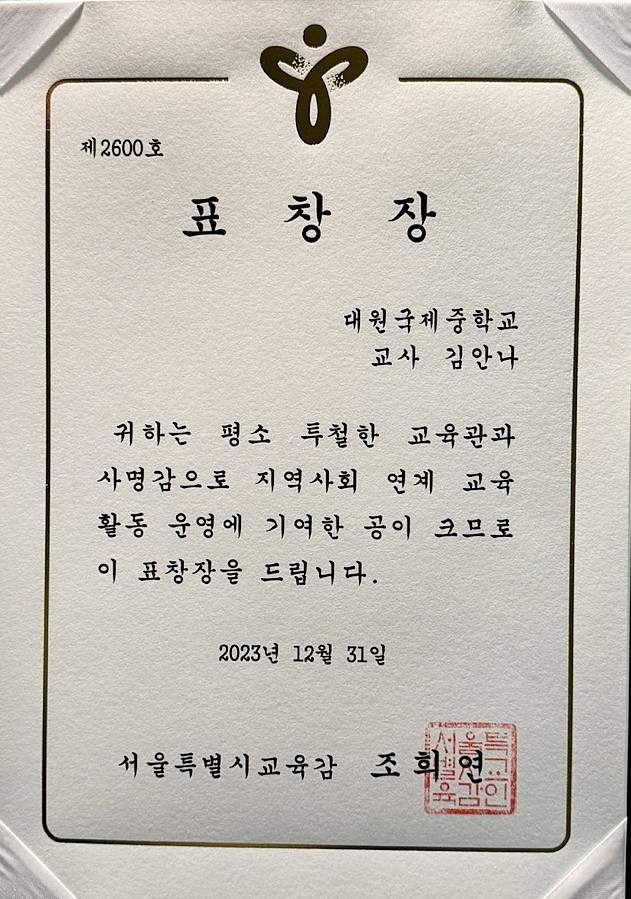 제2600호
표 창 장
대원국제중학교
교사 김안나
귀하는 평소 투철한 교육관과
사명감으로 지역사회 연계 교육
활동 운영에 기여한 공이 크므로
이 표창장을 드립니다.
2023년 12월 31일
서울특별시교육감 조희연
서울특
별시교
육감인